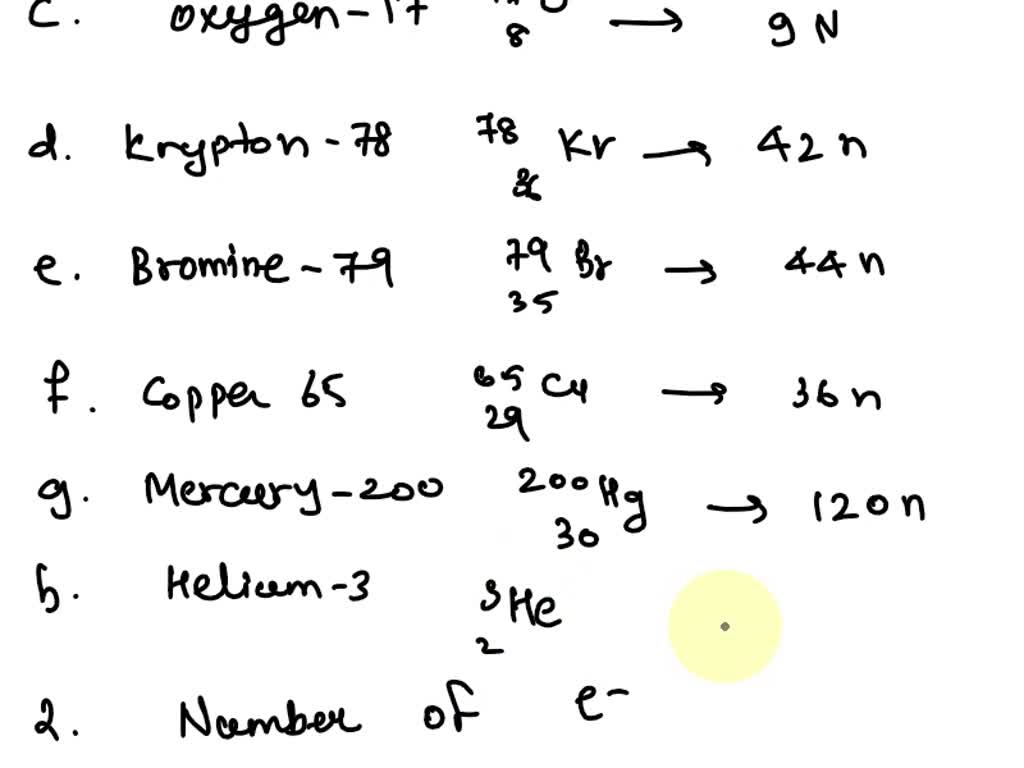 c. oxygen-17 8 → 9 N
d. Krypton-78 78 36 Kr → 42 n
e. Bromine-79 79 35 Br → 44 n
f. Copper 65 65 29 Cu → 36 n
g. Mercury-200 200 30 Hg → 120 n
h. Helium-3 3 2 He
2. Number of e-